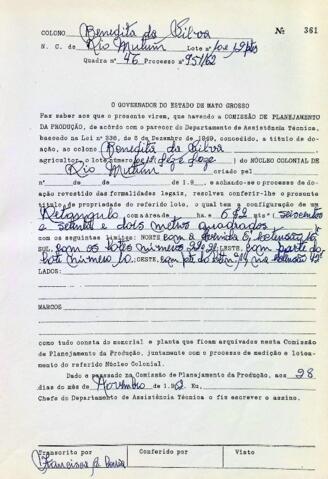 COLONO Benedita da Silva Nº 361
N. C. de Rio Mutum Lote nº
Quadra nº 46 Processo nº 951/62
O GOVERNADOR DO ESTADO DE MATO GROSSO
Faz saber aos que o presente virem, que havendo a COMISSÃO DE PLANEJAMENTO
DA PRODUÇÃO, de acôrdo com o parecer do Departamento de Assistência Técnica,
baseado na Lei nº 336, de 6 de Dezembro de 1949, concedido, a título de
doação, ao colono Benedita da Silva
agricultor, o lote número do NÚCLEO COLONIAL DE
Rio Mutum criado pel
nº de de de 1.9 , e achando-se o processo de
doação revestido das formalidades legais, resolveu conferir-lhe o presente
título de propriedade do referido lote, o qual tem a configuração de um
Retangulo com a área de ha. e 672 mts² ( seiscentos
e setenta e dois metros quadrados
com os seguintes limites: NORTE com a Avenida extensão
SUL, com os lotes números ESTE, com parte do
lote número OESTE, com na extensão
LADOS:
MARCOS
como tudo consta do memorial e planta que ficam arquivados nesta Comissão
de Planejamento da Produção, juntamente com o processo de medição e loteamento
do referido Núcleo Colonial.
Dado e passado na Comissão de Planejamento da Produção, aos 28
dias do mês de Novembro de 1.962. Eu,
Chefe do Departamento de Assistência Técnica o fiz escrever e assino.
Transcrito por Conferido por Visto
Francisca